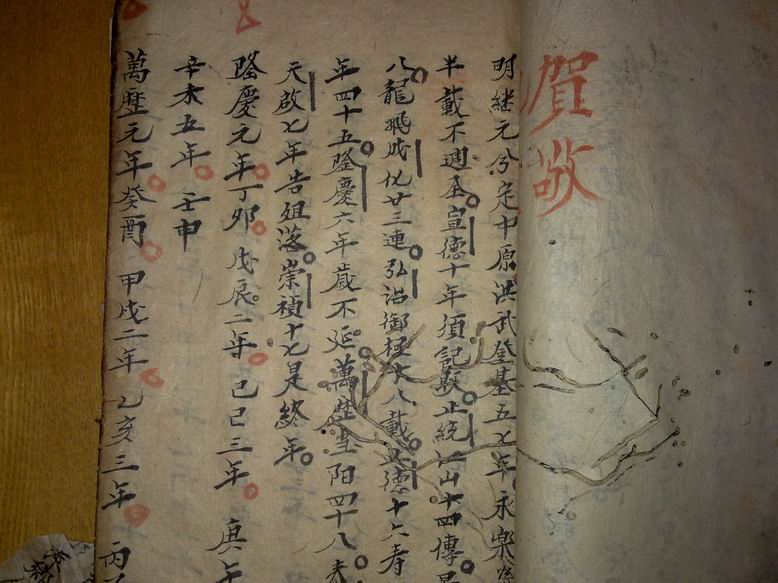 賀敬
明継元兮定中原洪武登基五七年永樂
半載不週全宣德十年須記數正統江山十四傳
八龍飛成化廿三連弘治御極十八載正德十六寿
年四十五隆慶六年歲不延萬歷当阳四十八
天啟七年告殂落崇禎十七是終年
隆慶元年丁夘 戊辰二年 己巳三年 庚午
辛未五年 壬申
萬歷元年癸酉 甲戌二年 乙亥三年 丙